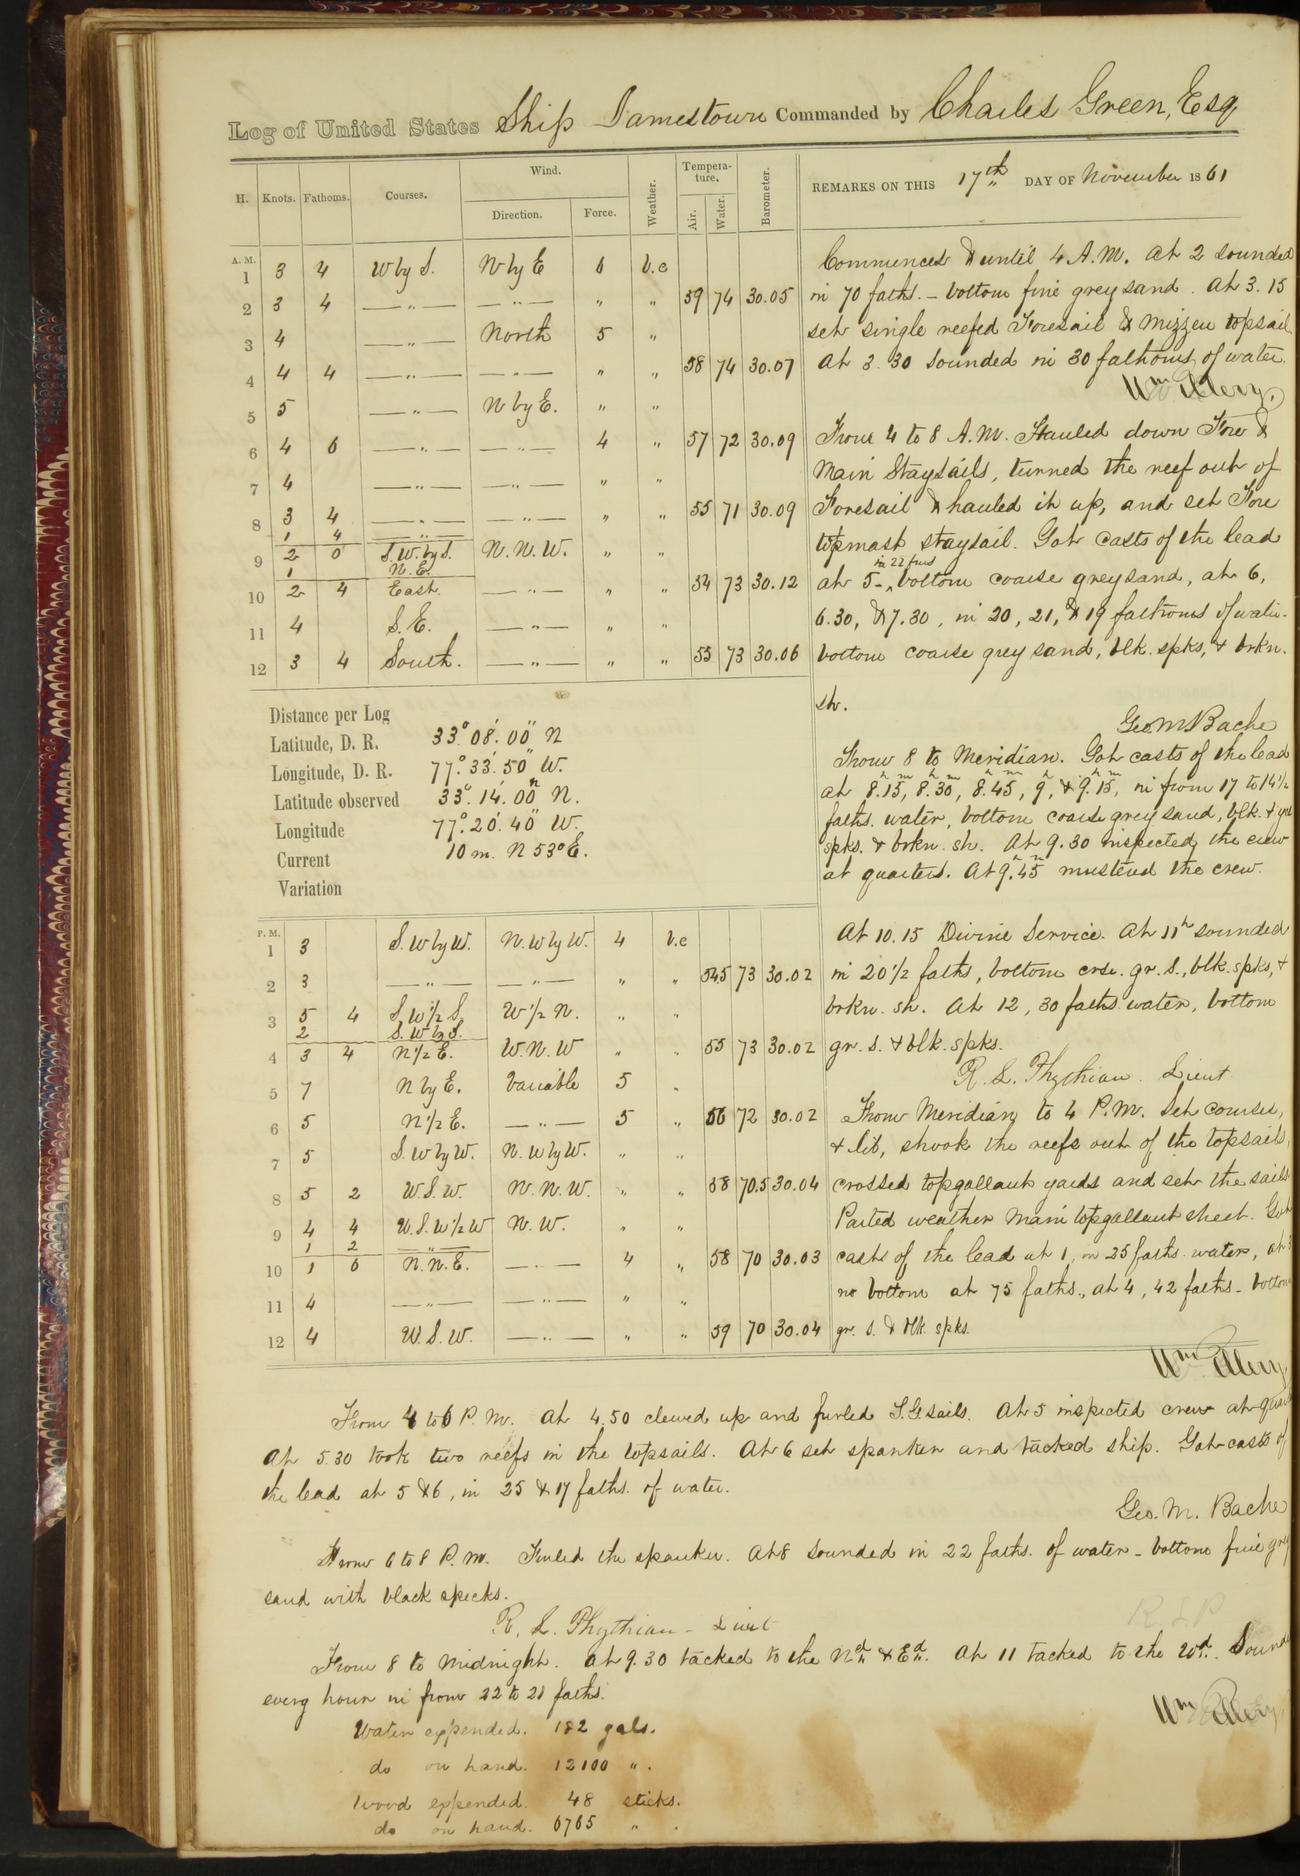 Log of United States Ship Jamestown Commanded by Charles Green, Esq
H. Knots. Fathoms. Courses. Wind. Direction. Force. Weather. Temperature. Air. Water. Barometer.
REMARKS ON THIS 17th DAY OF November 1861
A. M.
1 3 4 W by S. N by E 6 b.c
2 3 4 — " — — " — " " 59 74 30.05
3 4 — " — North 5 "
4 4 4 — " — — " — " " 58 74 30.07
5 5 — " — N by E. " "
6 4 6 — " — — " — 4 " 57 72 30.09
7 4 — " — — " — " "
8 3 4 — " — — " — " " 55 71 30.09
1 4 — " —
9 2 0 S.W. by S. N. N. W. " "
1 N. E.
10 2 4 East — " — " " 54 73 30.12
11 4 S. E. — " — " "
12 3 4 South. — " — " " 55 73 30.06
Commences & until 4 A.M. At 2 sounded
in 70 faths. – bottom fine grey sand. At 3.15
set single reefed Foresail & Mizzen topsail
At 3.30 sounded in 30 fathoms of water.
Wm Ellery.
From 4 to 8 A.M. Hauled down Fore &
Main Staysails, turned the reef out of
Foresail & hauled it up, and set Fore
topmast staysail. Got casts of the lead
in 22 fms
at 5 – bottom coarse grey sand, at 6,
6.30, & 7.30, in 20, 21, & 19 fathoms of water.
bottom coarse grey sand, blk. spks, & brkn.
sh.
Geo. M Bache
Distance per Log
Latitude, D. R. 33° 08' 00" N
Longitude, D. R. 77° 33' 50" W.
Latitude observed 33° 14' 00" N.
Longitude 77° 20' 40" W.
Current 10 m. N 53° E.
Variation
From 8 to Meridian. Got casts of the lead
at 8h.15m, 8h.30m, 8h.45m, 9h, & 9h.15m, in from 17 to 14 1/2
faths. water, bottom coarse grey sand, blk. & yel
spks. & brkn. sh. At 9.30 inspected the crew
at quarters. At 9h.45m mustered the crew.
At 10.15 Divine Service. At 11h sounded
in 20 1/2 faths, bottom crse. gr. s., blk. spks, &
brkn. sh. At 12, 30 faths water, bottom
gr. s. & blk. spks.
R. L. Phythian. Lieut
P. M.
1 3 S. W by W. N. W by W. 4 b.c
2 3 — " — — " — " " 54.5 73 30.02
3 5 4 S. W 1/2 S. W 1/2 N. " "
2 S. W by S.
4 3 4 N 1/2 E. W. N. W " " 55 73 30.02
5 7 N by E. Variable 5 "
6 5 N 1/2 E. — " — 5 " 56 72 30.02
7 5 S. W by W. N. W by W. " "
8 5 2 W. S. W. N. N. W. " " 58 70.5 30.04
9 4 4 W. S. W 1/2 W N. W. " "
1 2 — " —
10 1 6 N. N. E. — " — 4 " 58 70 30.03
11 4 — " — — " — " "
12 4 W. S. W. — " — " " 59 70 30.04
From Meridian to 4 P.M. Set courses,
& jib, shook the reefs out of the topsails,
crossed topgallant yards and set the sails.
Parted weather Main topgallant sheet. Got
casts of the lead at 1, in 25 faths. water, at 3
no bottom at 75 faths., at 4, 42 faths – bottom
gr. s. & blk. spks.
Wm Ellery.
From 4 to 6 P. M. At 4.50 clewed up and furled T. G sails. At 5 inspected crew at
At 5.30 took two reefs in the topsails. At 6 set spanker and tacked ship. Got casts of
the lead at 5 & 6, in 25 & 17 faths. of water.
Geo. M. Bache
From 6 to 8 P. M. Furled the spanker. At 8 sounded in 22 faths. of water – bottom fine grey
sand with black specks.
R. L. Phythian – Lieut
R L P
From 8 to Midnight. At 9.30 tacked to the Nd & Ed. At 11 tacked to the Wd. Sounded
every hour in from 22 to 28 faths.
Wm Ellery.
Water expended. 182 gals.
do on hand. 12100 " .
Wood expended. 48 sticks.
do on hand. 6765 " .